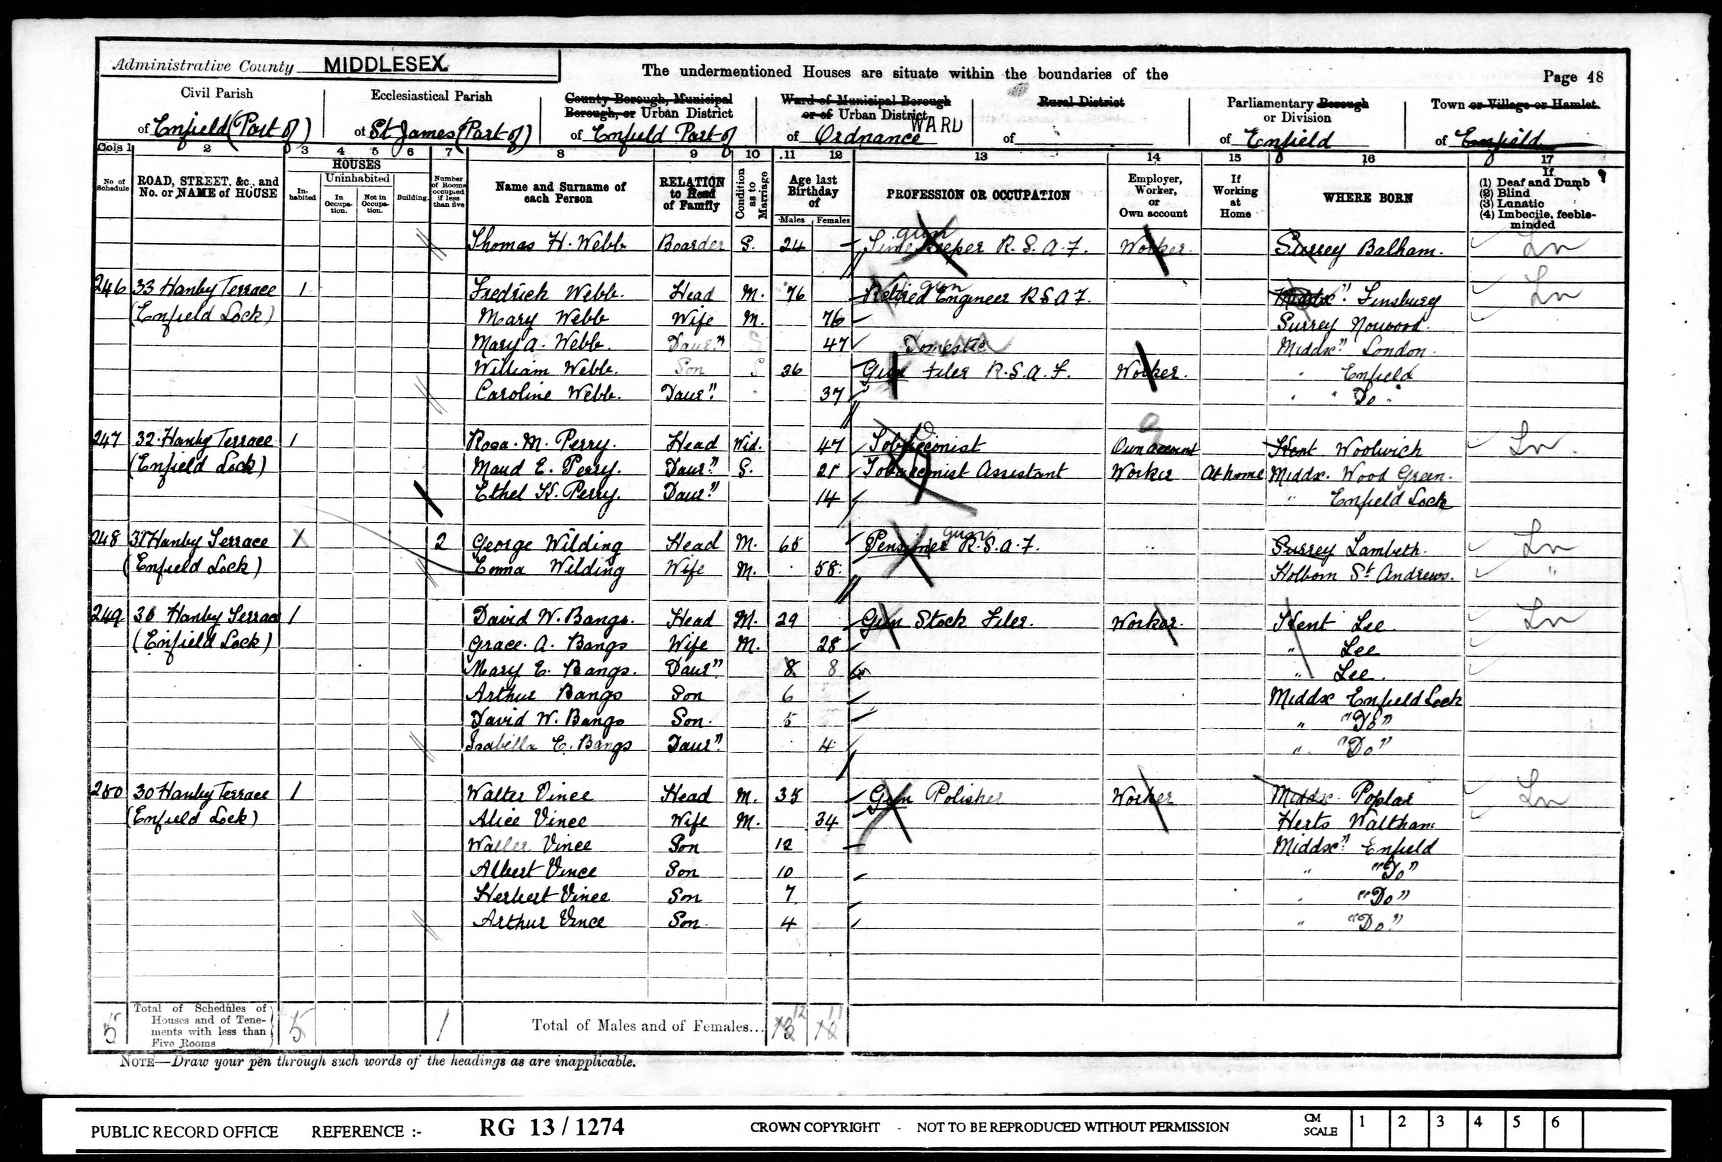 Administrative County MIDDLESEX
The undermentioned Houses are situate within the boundaries of the
Page 48
Civil Parish
of Enfield (Part of)
Ecclesiastical Parish
of St James (Part of)
County Borough, Municipal Borough, or Urban District
of Enfield Part of
Ward of Municipal Borough or of Urban District
of Ordnance WARD
Rural District
of
Parliamentary Borough or Division
of Enfield
Town or Village or Hamlet
of Enfield
Cols 1 2 3 4 5 6 7 8 9 10 11 12 13 14 15 16 17
No. of Schedule
ROAD, STREET, &c., and No. or NAME of HOUSE
HOUSES
Inhabited
Uninhabited
In Occupation.
Not in Occupation.
Building.
Number of Rooms occupied if less than five
Name and Surname of each Person
RELATION to Head of Family
Condition as to Marriage
Age last Birthday of
Males Females
PROFESSION OR OCCUPATION
Employer, Worker, or Own account
If Working at Home
WHERE BORN
If
(1) Deaf and Dumb
(2) Blind
(3) Lunatic
(4) Imbecile, feeble-minded
Thomas H. Webb Boarder S. 24 Timekeeper R.S.A.F. gun Worker Surrey Balham. Ln
246 33 Hanby Terrace 1 Fredrick Webb. Head M. 76 Retired Engineer R.S.A.F. gun Middx" Finsbury Ln
(Enfield Lock) Mary Webb Wife M. 76 Surrey Norwood.
Mary A. Webb. Daur" S 47 Domestic Middx" London.
William Webb. Son S 36 Gun Filer R.S.A.F. Worker. " Enfield
Caroline Webb. Daur" 37 " " Do
247 32 Hanby Terrace 1 Rosa. M. Perry. Head Wid. 47 Tobacconist Own account Kent Woolwich Ln
(Enfield Lock) Maud E. Perry. Daur" S. 21 Tobacconist Assistant Worker At home Middx. Wood Green.
Ethel K. Perry. Daur" 14 " Enfield Lock
248 31 Hanby Terrace X 2 George Wilding Head M. 65 Pensioner R.S.A.F. guns Surrey Lambeth. Ln
(Enfield Lock) Emma Wilding Wife M. 58 Holborn St Andrews. "
249 36 Hanby Terrace 1 David W. Bangs. Head M. 29 Gun Stock Filer. Worker. Kent Lee Ln
(Enfield Lock) Grace. A. Bangs Wife M. 28 " Lee
Mary E. Bangs. Daur" 8 8 " Lee.
Arthur Bangs Son 6 Middx Enfield Lock
David W. Bangs Son. 5 " "Do"
Isabella E. Bangs Daur" 4 " "Do"
250 30 Hanby Terrace 1 Walter Vince Head M. 35 Gun Polisher Worker Middx. Poplar Ln
(Enfield Lock) Alice Vince Wife M. 34 Herts Waltham
Walter Vince Son 12 Middx" Enfield
Albert Vince Son 10 " "Do"
Herbert Vince Son 7 " "Do"
Arthur Vince Son 4 " "Do"
5 Total of Schedules of Houses and of Tenements with less than Five Rooms 5 1 Total of Males and of Females... 12 11
NOTE—Draw your pen through such words of the headings as are inapplicable.
PUBLIC RECORD OFFICE REFERENCE :- RG 13 / 1274 CROWN COPYRIGHT - NOT TO BE REPRODUCED WITHOUT PERMISSION CM SCALE 1 2 3 4 5 6